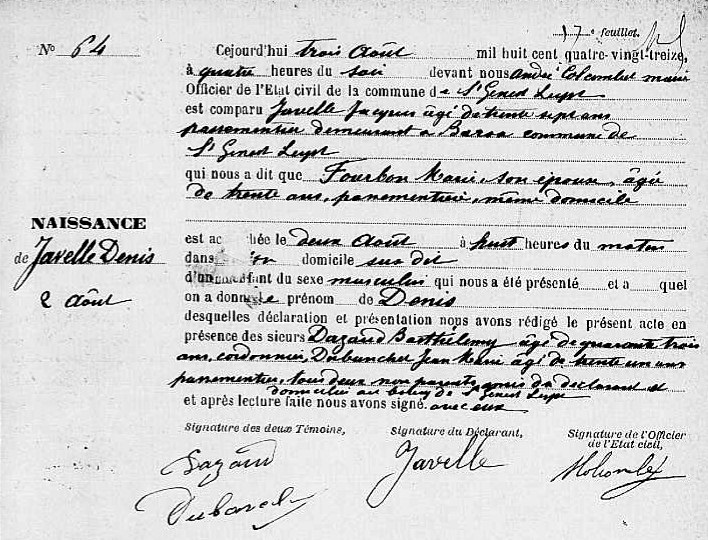 17e feuillet.
No 64
Cejourd'hui trois Août mil huit cent quatre-vingt-treize,
à quatre heures du soir devant nous André Colombet maire
Officier de l'Etat civil de la commune de St Genest Lerpt
est comparu Javelle Jacques âgé de trente sept ans
passementier demeurant à commune de
St Genest Lerpt
qui nous a dit que Fourbon Marie, son épouse, âgée
de trente ans, passementière, même domicile
NAISSANCE
de Javelle Denis
2 Août
est accouchée le deux Août à huit heures du matin
dans son domicile sus dit
d'un enfant du sexe masculin qui nous a été présenté et a quel
on a donné le prénom de Denis
desquelles déclaration et présentation nous avons rédigé le présent acte en
présence des sieurs Dazaud Barthélemy âgé de quarante trois
ans, cordonnier, Dubanchet Jean Marie âgé de trente un ans
passementier, tous deux non parents amis du déclarant et
domiciliés au bourg de St Genest Lerpt
et après lecture faite nous avons signé avec eux
Signature des deux Témoins,
Signature du Déclarant,
Signature de l'Officier
de l'Etat civil,
Dazaud
Javelle